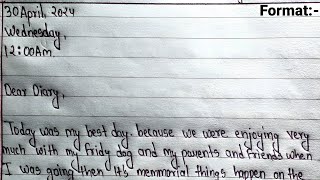 Format:-
30 April, 2024
Wednesday,
12:00Am.
Dear Diary,
Today was my best day. because we were enjoying very
much with my fridy dog and my parents and friends when
I was going then it's memmorial things happen on the